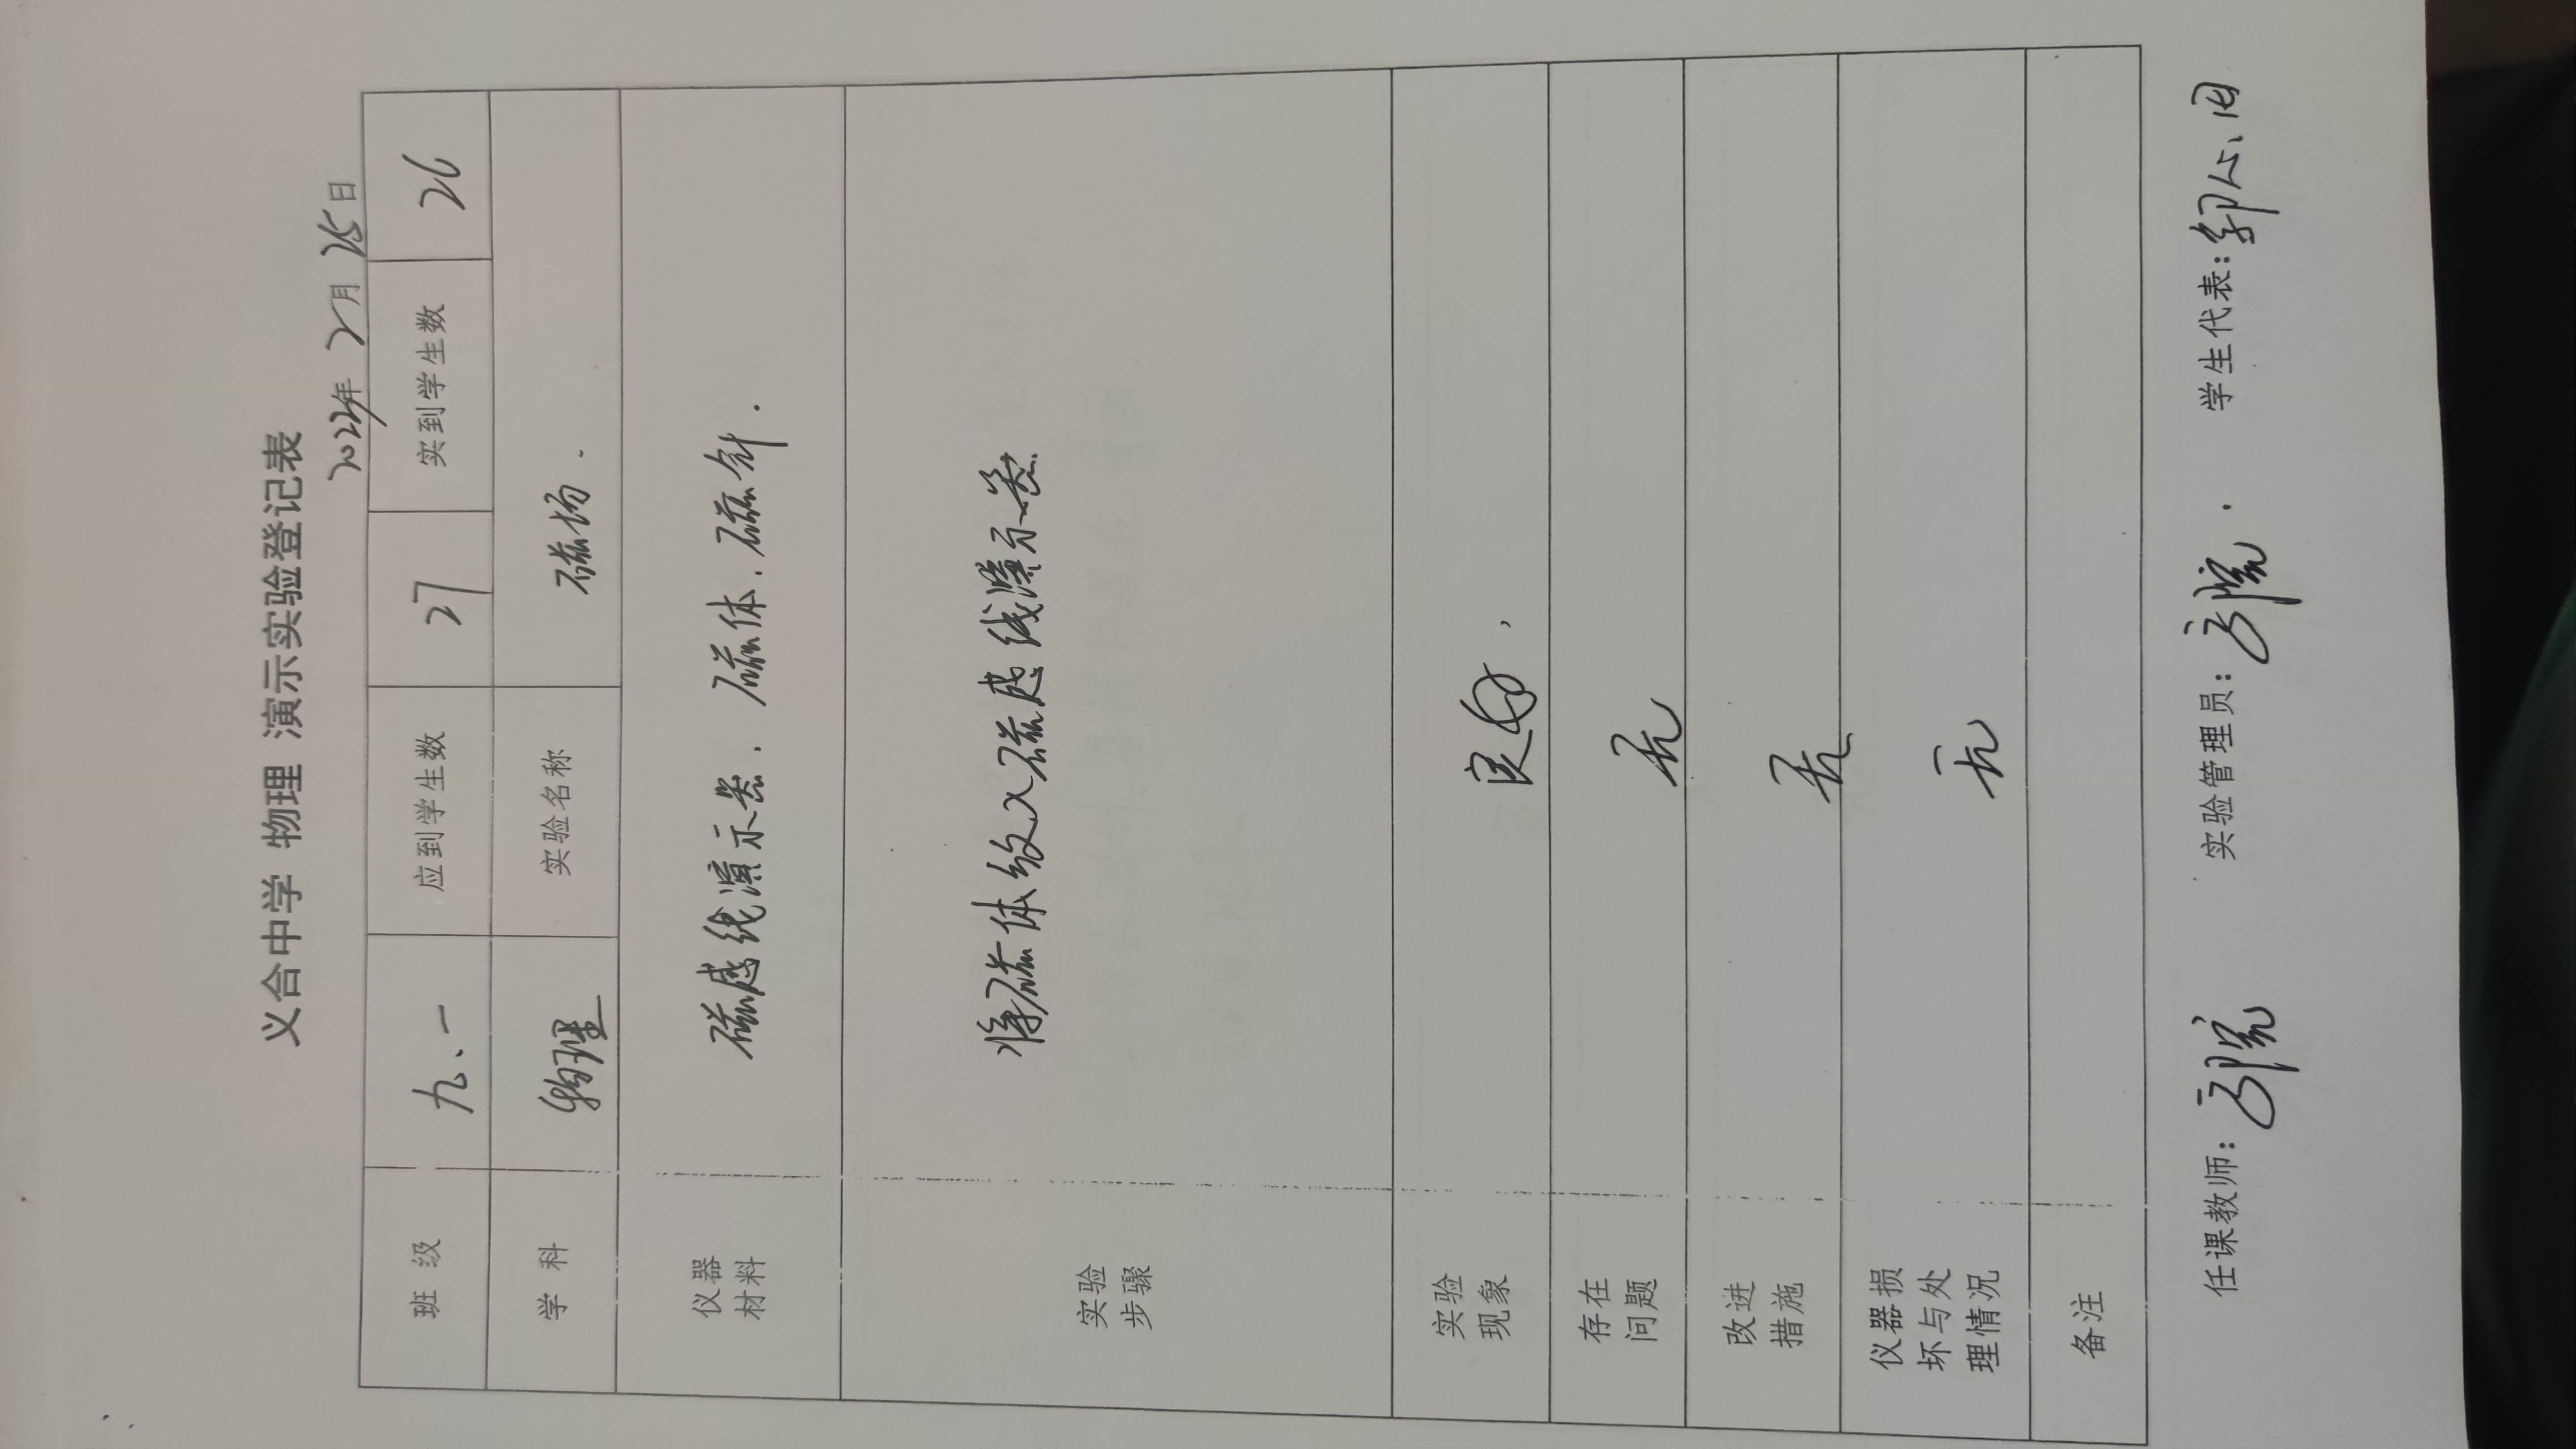 义合中学 物理 演示实验登记表
年 2月 25日
班 级 九、一 应到学生数 27 实到学生数 26
学 科 物理 实验名称 磁场.
仪器材料 磁感线演示器. 磁体. 磁针.
实验步骤 将磁体放入磁感线演示器
实验现象 良好.
存在问题 无
改进措施 无
仪器损坏与处理情况 无
备注
任课教师: 实验管理员: 学生代表: